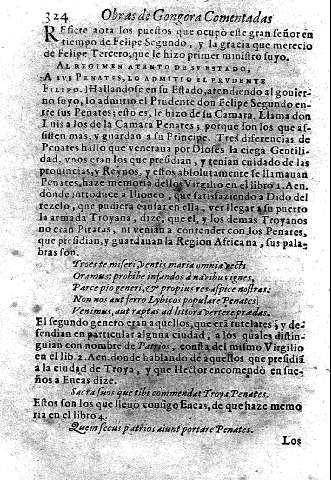 324 Obras de Gongora Comentadas
REfiere aora los puestos que ocupò este gran señor en
tiempo de Felipe Segundo, y la gracia que merecio
de Felipe Tercero, que le hizo primer ministro suyo.
AL REGIMEN ATENTO DE SU ESTADO,
A SUS PENATES, LO ADMITIO EL PRUDENTE
FILIPO.] Hallandose en su Estado, atendiendo al gouier-
no suyo, lo admitio el Prudente don Felipe Segundo en-
tre sus Penates; esto es, le hizo de su Camara. Llama don
Luis a los de la Camara Penates; porque son los que as-
sisten mas, y guardan a su Principe. Tres diferencias de
Penates hallo que veneraua por Dioses la ciega Gentili-
dad, vnos eran los que presidian, y tenian cuidado de las
prouincias, y Reynos, y estos absolutamente se llamauan
Penates, haze memoria dellos Virgilio en el libro 1. Aen.
donde introduce a Ilioneo, que satisfaziendo a Dido del
rezelo, que pudiera equila en ella, ver llegar a su puerto
la armada Troyana, dize, que el, y los demas Troyanos
no eran Piratas, ni venian a contender con los Penates,
que presidian, y guardauan la Region Africana, sus pala-
bras son.
Troes te miseri, ventis maria omnia vecti
Oramus; prohibe infandos a nauibus ignes,
Parce pio generi, & propius res aspice nostras.
Non nos aut ferro Lybicos populare Penates
Venimus, aut raptas ad littora vertere prædas.
El segundo genero eran aquellos, que erã tutelares, y de-
fendian en particular alguna ciudad, a los quales distin-
guian con nombre de Patrios, consta del mismo Virgilio
en el lib. 2. Aen. donde hablando de aquellos que presidiã
a la ciudad de Troya, y que Hector encomendò en sue-
ños a Eneas dize.
Sacra suos que tibi commendat Troya Penates.
Estos son los que lleuò contigo Eneas, de que haze memo
ria en el libro 4.
Quem secus patrios aiunt portare Penates.
Los